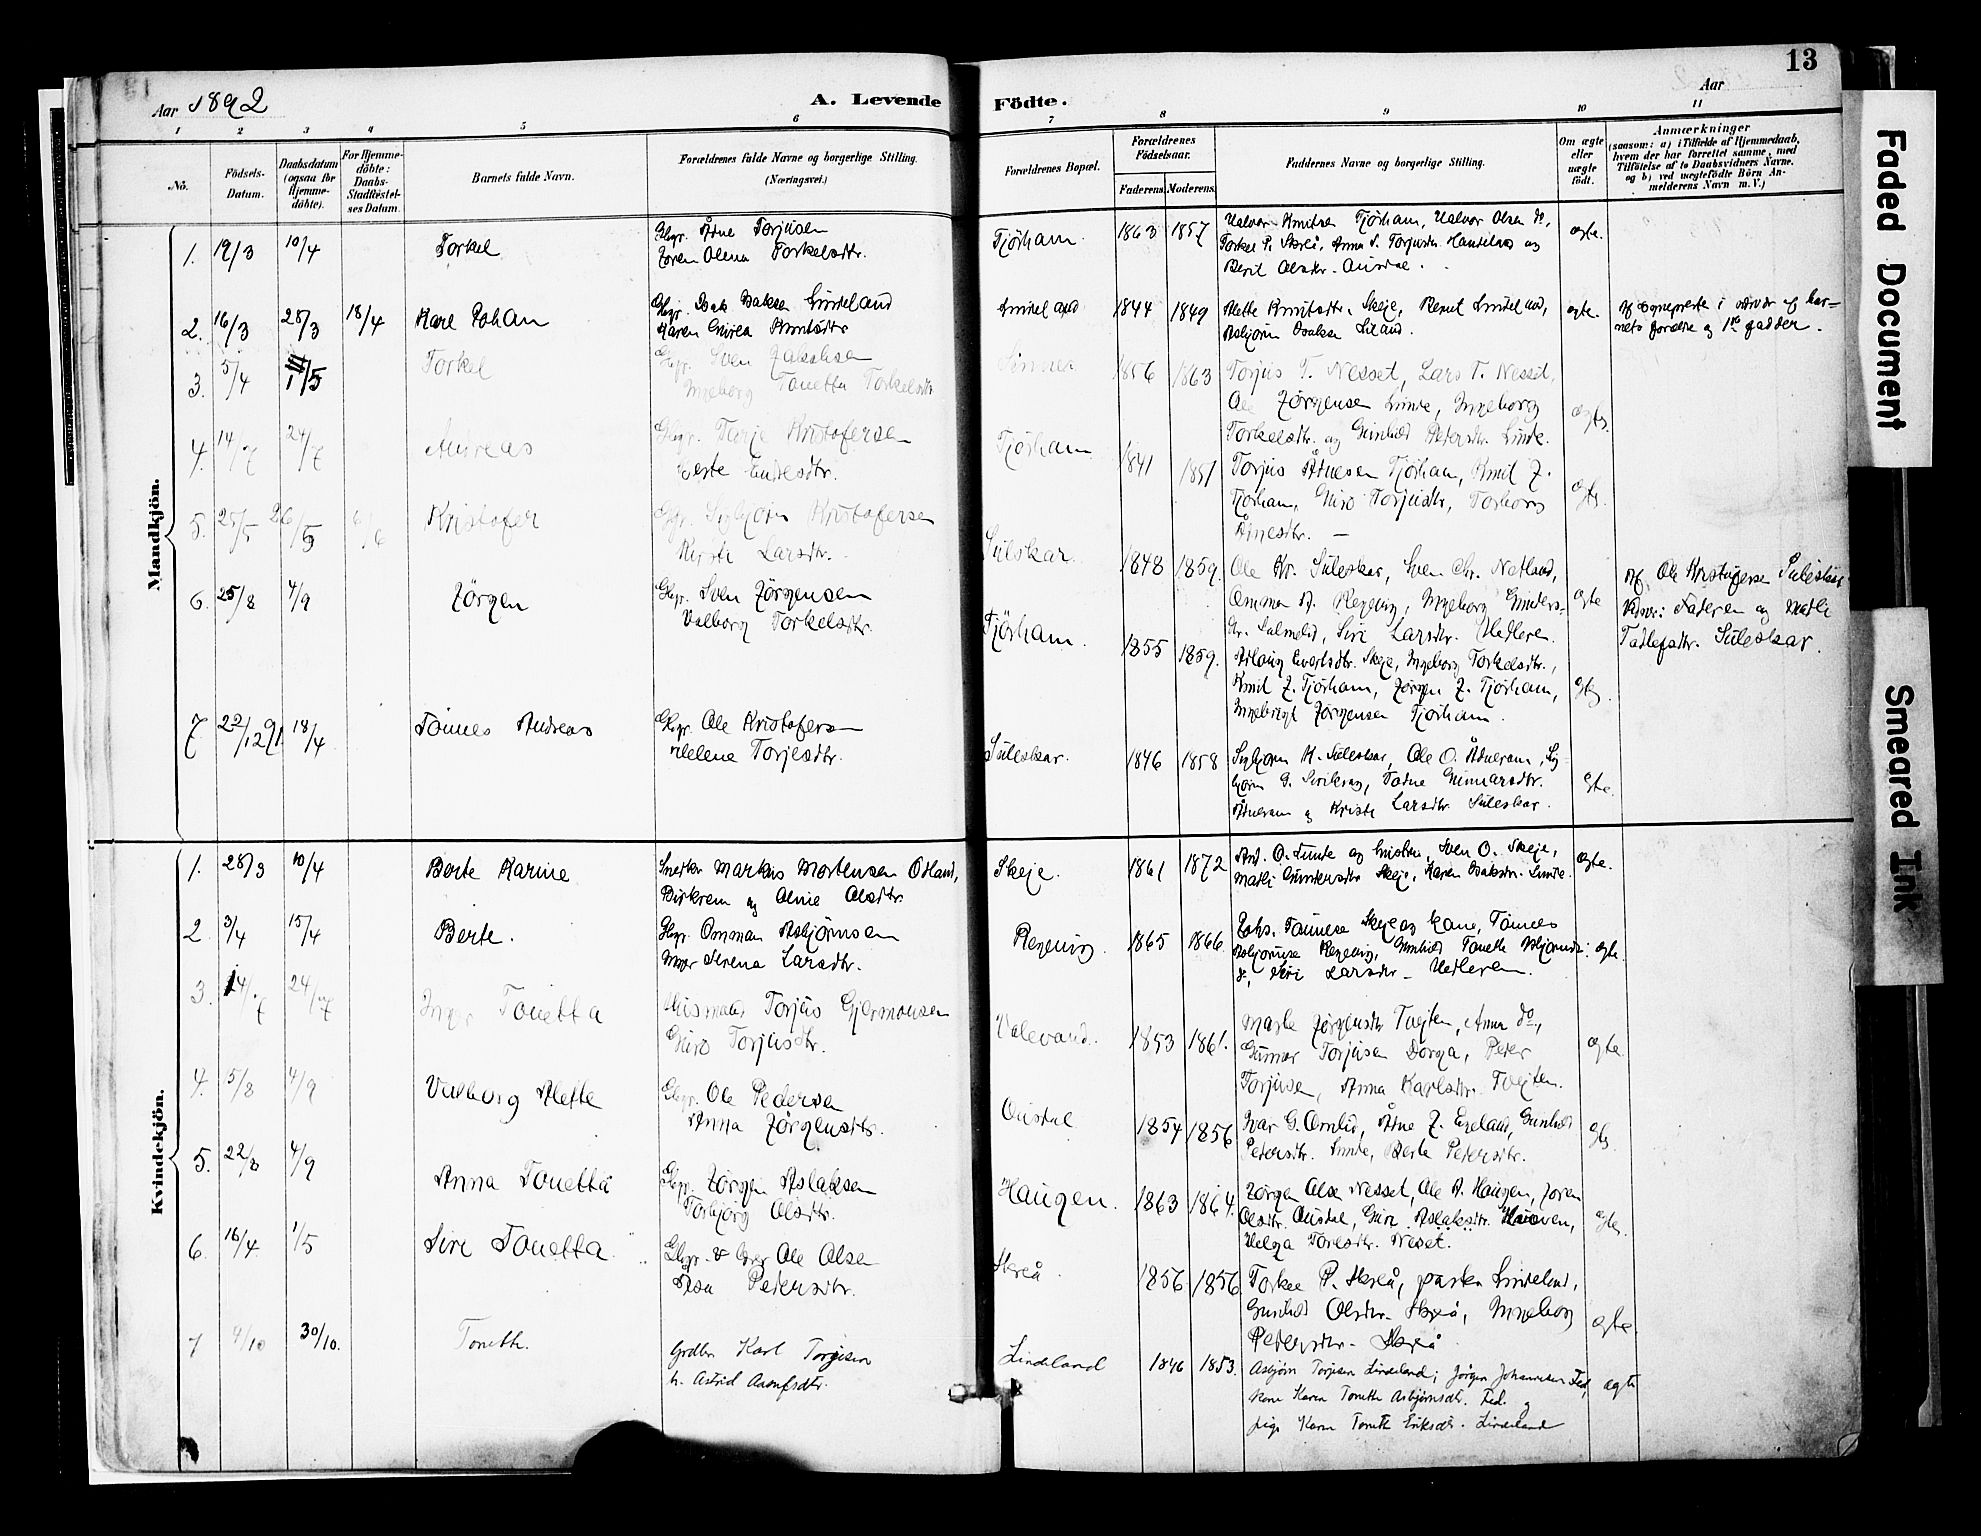 13
Aar 1892
A. Levende Födte.
Aar
1 2 3 4 5 6 7 8 9 10 11
No.
Födsels-Datum.
Daabsdatum (ogsaa for Hjemme-döbte).
For Hjemme-döbte: Daabs-Stadfæstel-ses Datum.
Barnets fulde Navn.
Forældrenes fulde Navne og borgerlige Stilling. (Næringsvei.)
Forældrenes Bopæl.
Forældrenes Födselsaar.
Faderens. Moderens.
Faddernes Navne og borgerlige Stilling.
Om ægte eller uægte födt.
Anmærkninger
(saasom: a) i Tilfælde af Hjemmedaab, hvem der har forrettet samme, med Tilföielse af to Daabsvidners Navne. og b) ved uægtefödte Börn An-melderens Navn m. V.)
Mandkjön.
1. 19/3 10/4 Torkel
Gbgr. Ådne Torjusen
Joren Olena Torkelsdtr.
Tjörham. 1863 1857
Halvor Knutsen Tjörham, Halvor Olsen do,
Torkel P. Skreå, Anna S. Torjusdtr. Haneland og
Berit Olsdtr. Ousdal.
ægte.
2. 16/3 28/3 18/4 Karl Johan
Gbgr. Isak Isaksen Lindeland
Karen Gurea Knutsdtr
Lindeland 1844 1849
Mette Knutsdtr. Skeje, Bernt Lindeland,
Asbjörn Isaksen Liland.
ægte.
Af sognepræst i nærvær af bar-
nets forældre og 1ste fadder.
3. 5/4 1/5 Torkel
Gbgr. Sven Jakobsen
Ingeborg Tonetta Torkelsdtr
Sinnes 1856 1863
Torjus T. Nesset, Lars T. Nesset,
Ole Jörgensen Linde, Ingeborg
Torkelsdtr. og Gunhild Pedersdtr. Linde.
ægte.
4. 14/7 24/7 Andreas
Gbgr. Terje Kristofersen
Berte Endresdtr.
Tjörham 1841 1851
Torjus Ådnesen Tjörham, Knut J.
Tjörham, Guro Torjusdtr., Torborg
Ådnesdtr. —
ægte.
5. 25/5 26/5 6/6 Kristofer
Gbgr. Sigbjörn Kristofersen
Kirsti Larsdtr.
Suleskar. 1848 1859.
Ole Kr. Suleskar, Sven Chr. Netland,
Omman A. Regevig, Ingeborg Gunders-
dtr. Salmelid, Siri Larsdtr. Hetleren.
ægte
Af Ole Kristofersen Suleskar
Vidner: Faderen og Malli
Tadlefsdtr. Suleskar.
6. 25/8 4/9 Jörgen
Gbgr. Sven Jörgensen
Valborg Torkelsdtr.
Tjörham. 1855 1859.
Aslaug Evertsdtr. Skeje, Ingeborg Torkelsdtr.,
Knut J. Tjörham, Jörgen J. Tjörham,
Ingebrigt Jörgensen Tjörham.
ægte.
7 22/12 91. 18/4 Tönnes Andreas
Gbgr. Ole Kristofersen
Helene Torjesdtr.
Suleskar. 1846 1858
Sigbjörn K. Suleskar, Ole O. Ådneram, Sig-
björn G. Gunnarsdtr.
Ådneram og Kristi Larsdtr Suleskar.
ægte.
Kvindekjön.
1. 28/3 10/4 Berte Karine
Snedker Markus Mortensen Osland,
Birkrem og Oline Olsdtr.
Skeje. 1861 1872
And. O. Linde og hustru, Sven O. Skeje,
Malli Gundersdtr Skeje, Karen Isaksdtr. Linde.
ægte.
2. 3/4 15/4 Berte.
Gbgr. Omman Asbjörnsen
Inger Serena Larsdtr.
Regevig. 1865 1866
Johs. Tönnesen Skeje og kone, Tönnes
Asbjörnsen Regevig, Gunhild Tonette Asbjörnsdtr:
do, Siri Larsdtr - Hetleren.
ægte.
3. 14/7 24/7 Inger Tonetta
Husmand Torjus Gjermonsen
Guro Torjusdtr.
Valevand. 1853 1861.
Marte Jörgensdtr Tvejten, Anna do.,
Gunnar Torjusen Dorga, Peter
Torjusen, Anna Karlsdtr. Tvejten.
ægte.
4. 5/8 4/9 Valborg Alette
Gbgr. Ole Pedersen
Anna Jörgensdtr.
Ousdal 1854 1856
Ivar G. Omlid, Ådne J. Egeland, Gunhild
Pedersdtr. Linde, Berte Pedersdtr.
ægte
5. 22/8 4/9 Anna Tonetta
Gbgr. Jörgen Aslaksen
Torbjörg Olsdtr.
Haugen. 1863 1864.
Jörgen Olsen Nesset, Ole A. Haugen, Joren
Olsdtr. Ousdal, Guro Aslaksdtr.
Helga Toresdtr. Neset.
ægte.
6. 16/4 1/5 Siri Tonetta.
Gbgr. Ole Olsen
Åsa Pedersdtr.
Skreå. 1856 1856
Torkel P. Skreå, Lindeland,
Gunhild Olsdtr. Skreå, Ingeborg
Pedersdtr. Skreå.
ægte.
7 9/10 30/10. Toneth.
Grdbr. Karl Torgisen
h. Astrid Aanufsdtr.
Lindeland 1846 1853.
Asbjørn Torjisen Lindeland; Jørgen Johannesen Fed,
kone Karen Toneth Asbjørnsdtr. Fed. og
pige Karen Toneth Eriksdtr. Lindeland
ægte
Faded Document
Smeared Ink